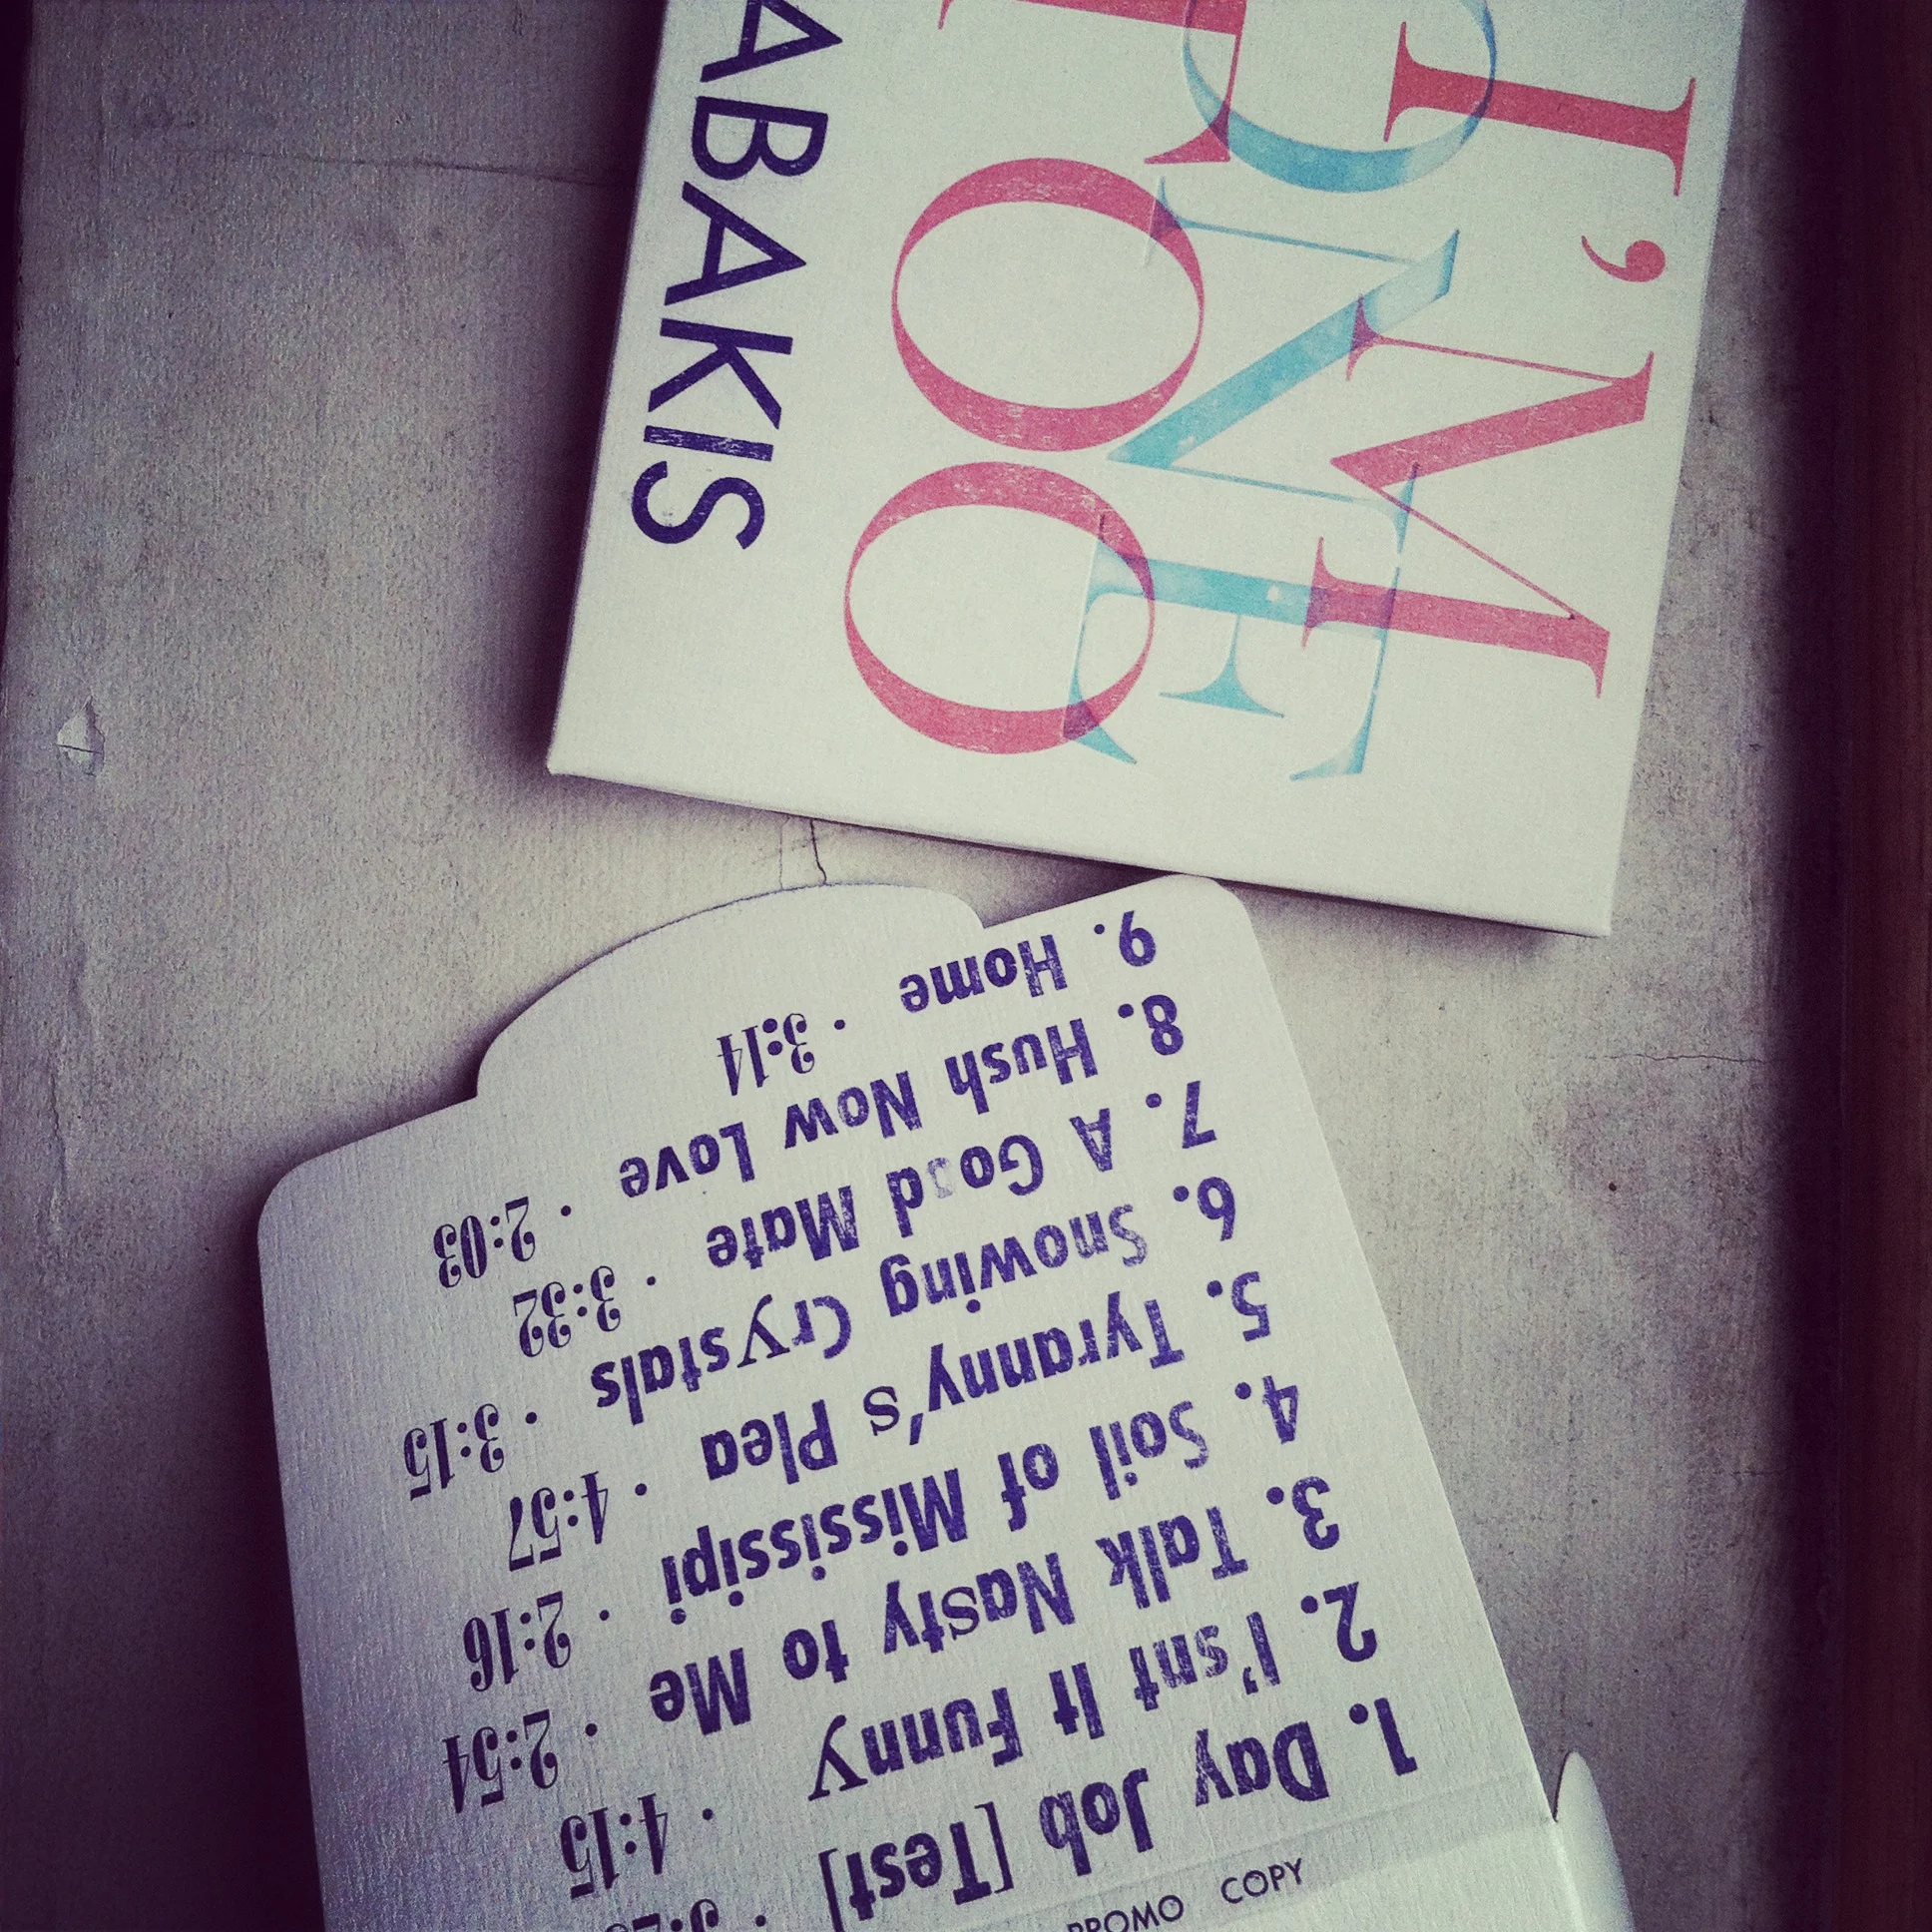 I'M
ONE
TOO
ABAKIS
PROMO COPY
1. Day Job [Test] ·
2. I'snt It Funny · 4:15
3. Talk Nasty to Me · 2:54
4. Soil of Mississipi · 2:16
5. Tyranny's Plea · 4:57
6. Snowing Crystals · 3:15
7. A Good Mate · 3:32
8. Hush Now Love · 2:03
9. Home · 3:14